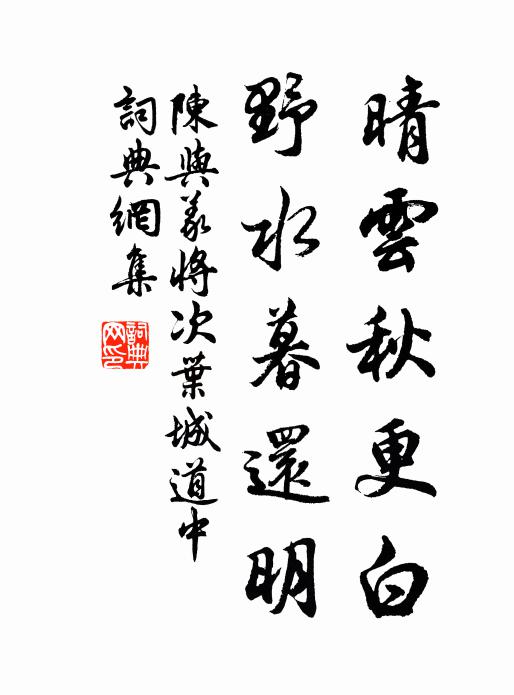 晴雲秋更白
野水暮還明
陳與義將次葉城道中
詞典網集
詞典網印